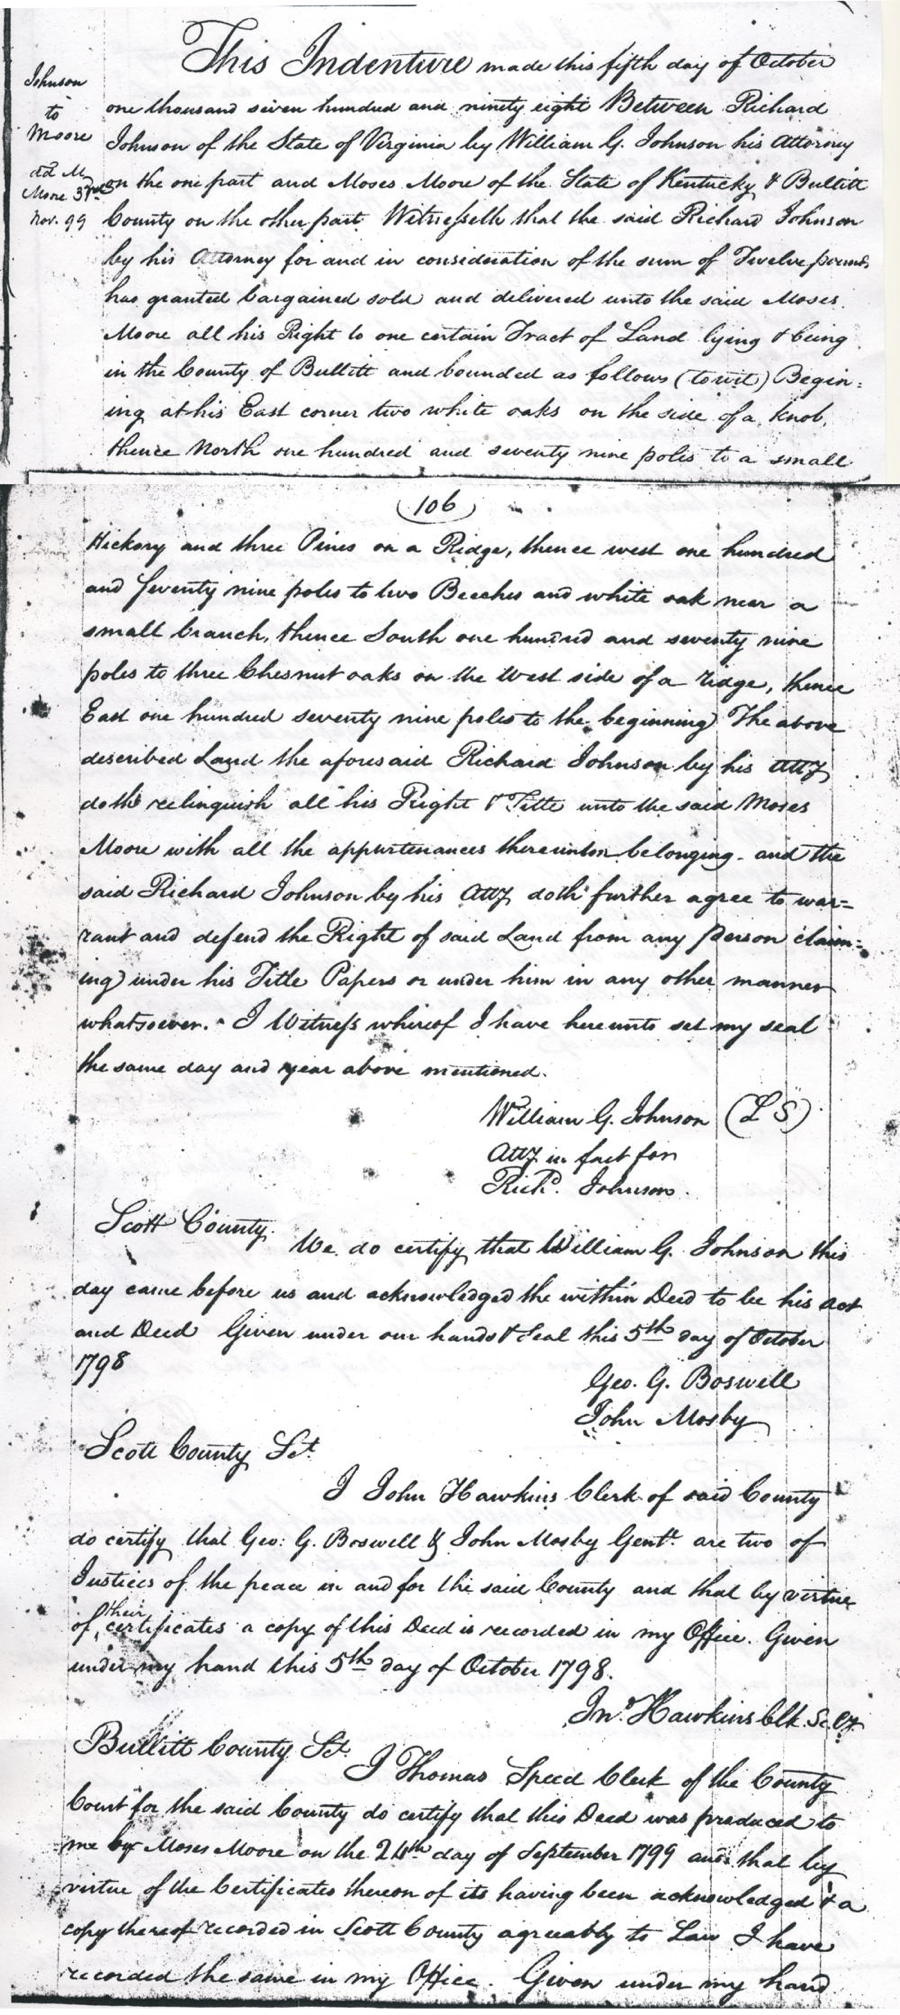 This Indenture made this fifth day of October
Johnson
to
Moore
dd M
Moore 3rd
Nov. 99
one thousand seven hundred and ninety eight Between Richard
Johnson of the State of Virginia by William G. Johnson his Attorney
on the one part and Moses Moore of the State of Kentucky & Bullitt
County on the other part Witnesseth that the said Richard Johnson
by his Attorney for and in consideration of the sum of Twelve pounds
has granted bargained sold and delivered unto the said Moses
Moore all his Right to one certain Tract of Land lying & being
in the County of Bullitt and bounded as follows (to wit) Begin=
ing at his East corner two white oaks on the side of a knob,
thence North one hundred and seventy nine poles to a small
(106)
Hickory and three Pines on a Ridge, thence west one hundred
and seventy nine poles to two Beeches and white oak near a
small branch, thence South one hundred and seventy nine
poles to three Chesnut oaks on the West side of a ridge, thence
East one hundred seventy nine poles to the beginning The above
described Land the aforesaid Richard Johnson by his Atty
doth relinquish all his Right & Title unto the said Moses
Moore with all the appurtenances thereunto belonging - and the
said Richard Johnson by his Atty doth further agree to war=
rant and defend the Right of said Land from any person claim=
ing under his Title Papers or under him in any other manner
whatsoever. I Witness whereof I have hereunto set my seal
the same day and year above mentioned.
William G. Johnson (L S)
Atty in fact for
Richd. Johnson.
Scott County
We do certify that William G. Johnson this
day came before us and acknowledged the within Deed to be his act
and Deed Given under our hands & Seal this 5th day of October
1798
Geo. G. Boswell
John Mosby
Scott County Sct.
I John Hawkins Clerk of said County
do certify that Geo: G. Boswell & John Mosby Gent. are two of
Justices of the peace in and for the said County and that by virtue
of their certificates a copy of this Deed is recorded in my Office. Given
under my hand this 5th day of October 1798.
Jno. Hawkins Clk. Sc. Cy.
Bullitt County Sct.
I Thomas Speed Clerk of the County
Court for the said County do certify that this Deed was produced to
me by Moses Moore on the 24th day of September 1799 and that by
virtue of the Certificates thereon of its having been acknowledged & a
copy thereof recorded in Scott County agreeably to Law I have
recorded the same in my Office. Given under my hand